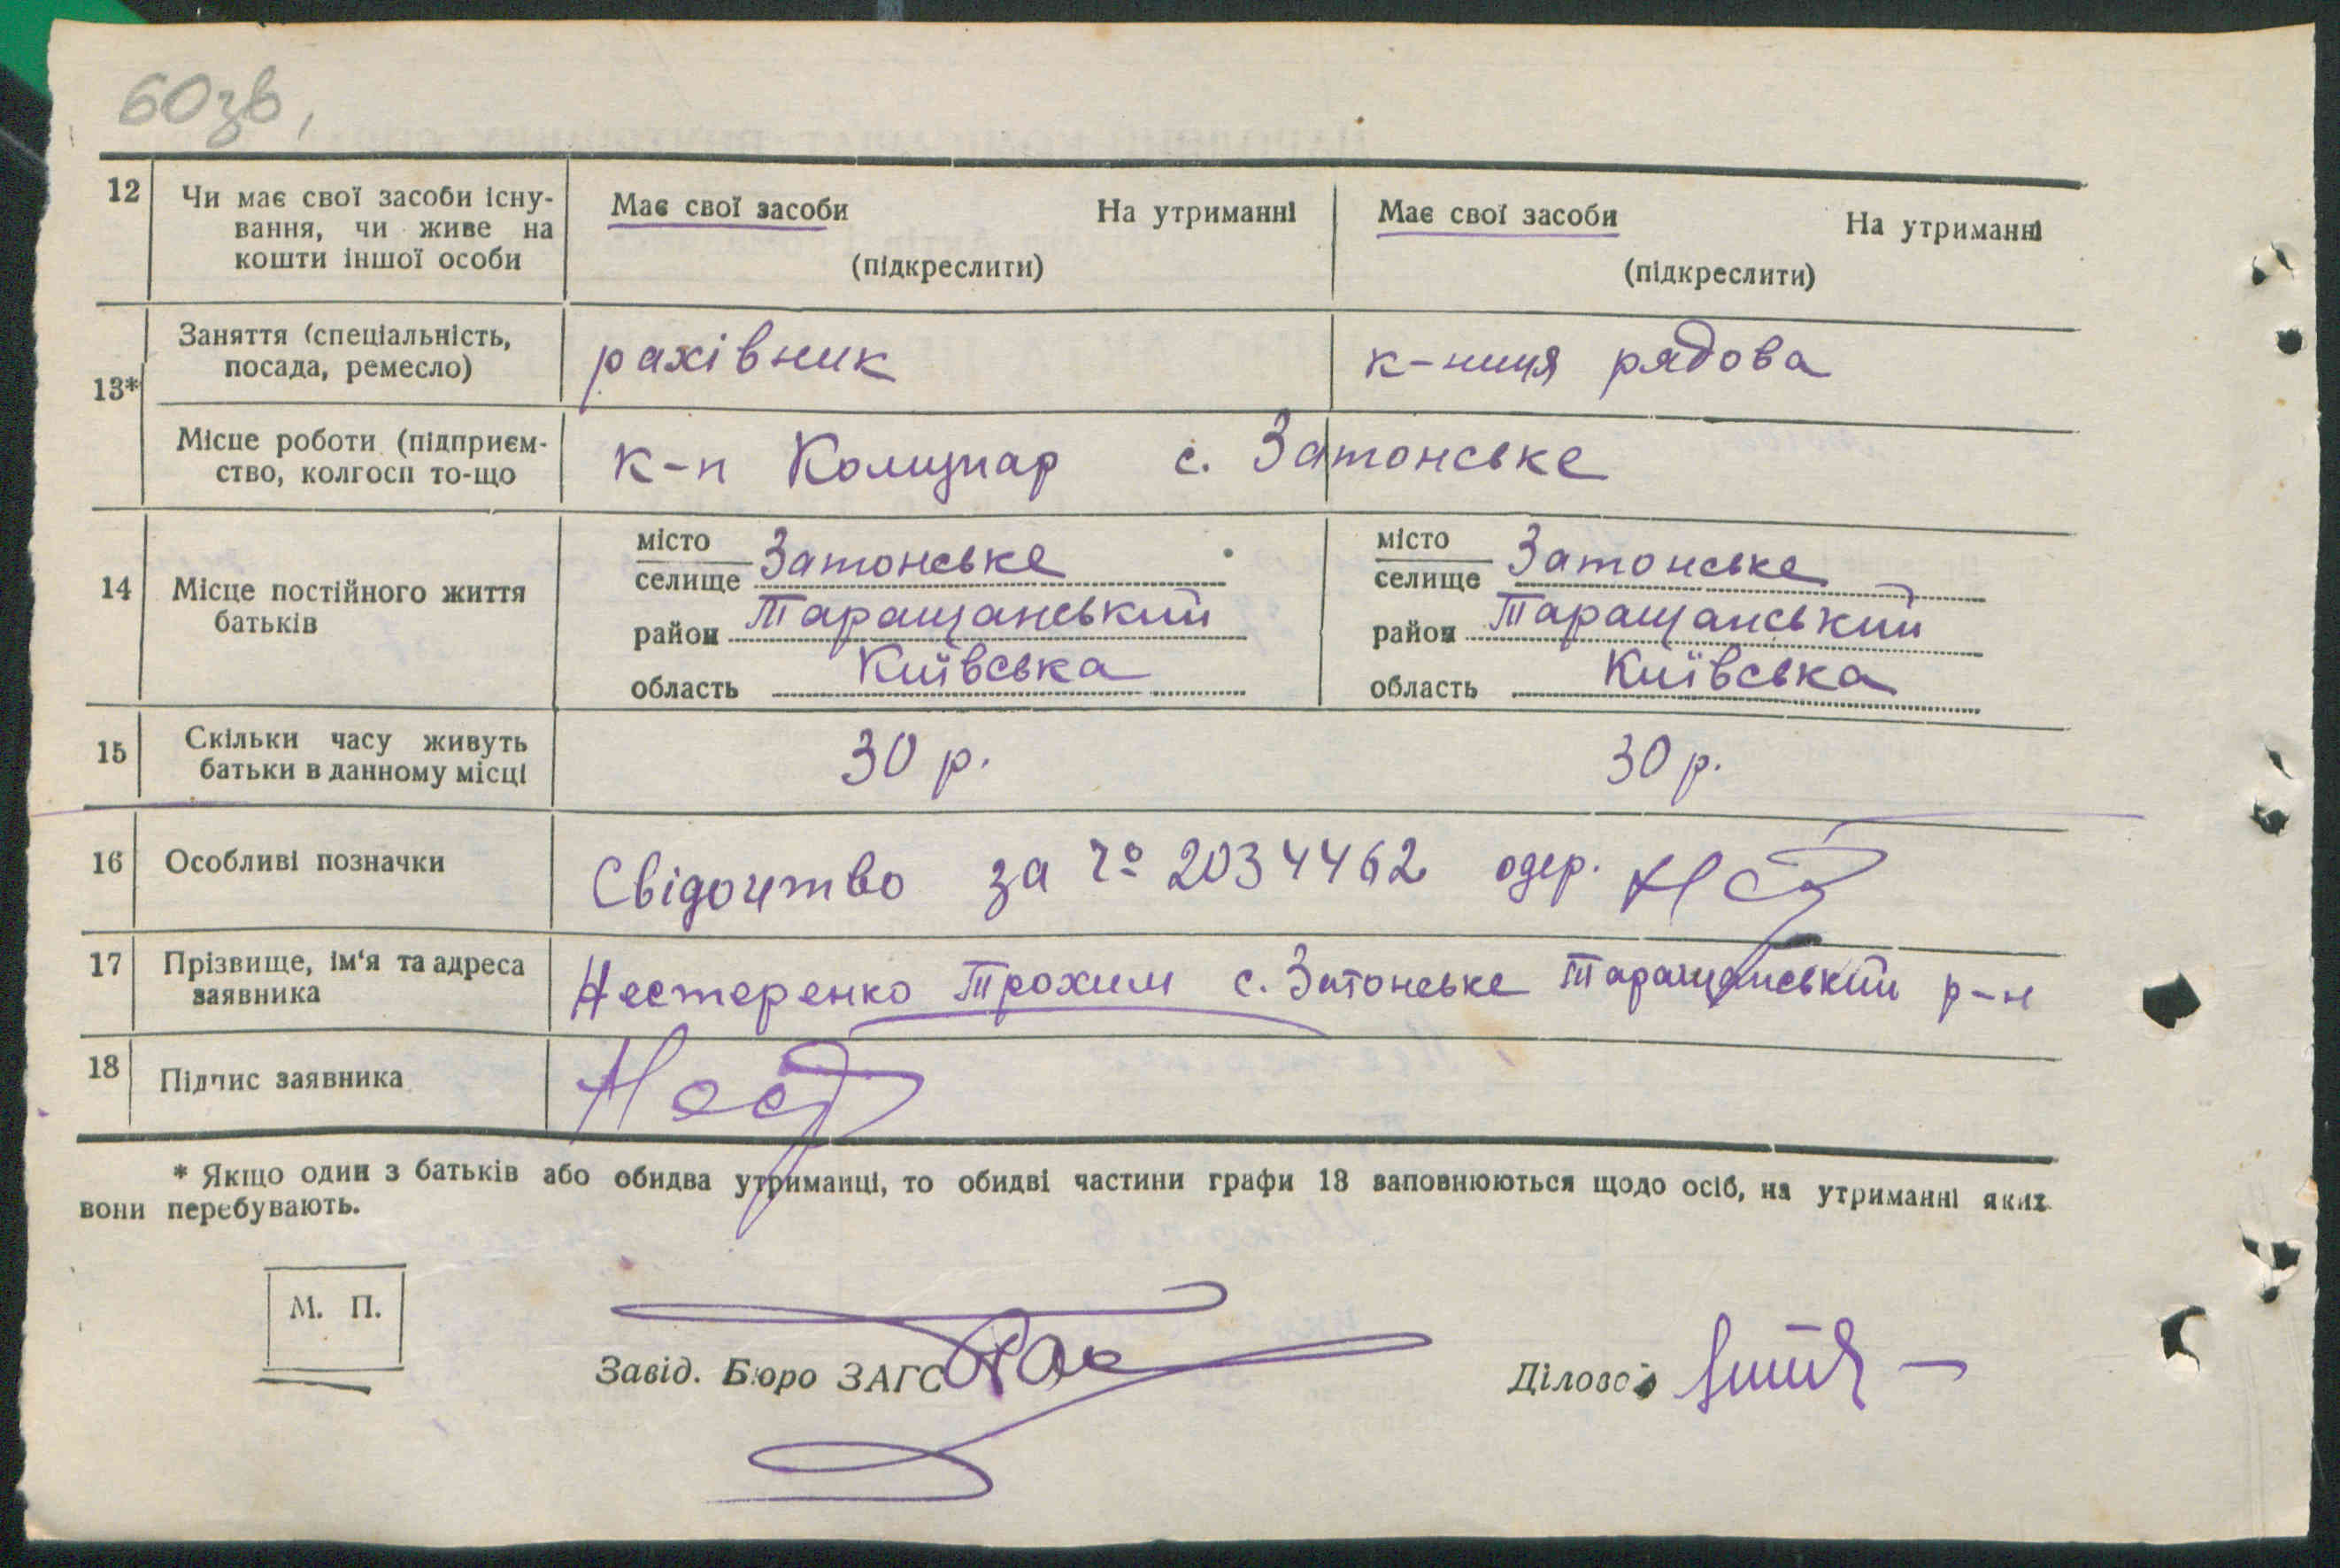 60зв,
12 Чи має свої засоби існу-
вання, чи живе на
кошти іншої особи
Має свої засоби На утриманні
(підкреслити)
Має свої засоби На утриманні
(підкреслити)
13*
Заняття (спеціальність,
посада, ремесло)
рахівник
к-ниця рядова
Місце роботи (підприєм-
ство, колгосп то-що
к-п с. Затонське
14 Місце постійного життя
батьків
місто
селище Затонське
район Таращанський
область Київська
місто
селище Затонське
район Таращанський
область Київська
15 Скільки часу живуть
батьки в данному місці
30 р.
30 р.
16 Особливі позначки
Свідоцтво за № 2034462 одер.
17 Прізвище, ім'я та адреса
заявника
Нестеренко Трохим с. Затонське Таращанський р-н
18 Підпис заявника
Нест
* Якщо один з батьків або обидва утриманці, то обидві частини графи 13 заповнюються щодо осіб, на утриманні яких
вони перебувають.
М. П.
Завід. Бюро ЗАГС
Діловод